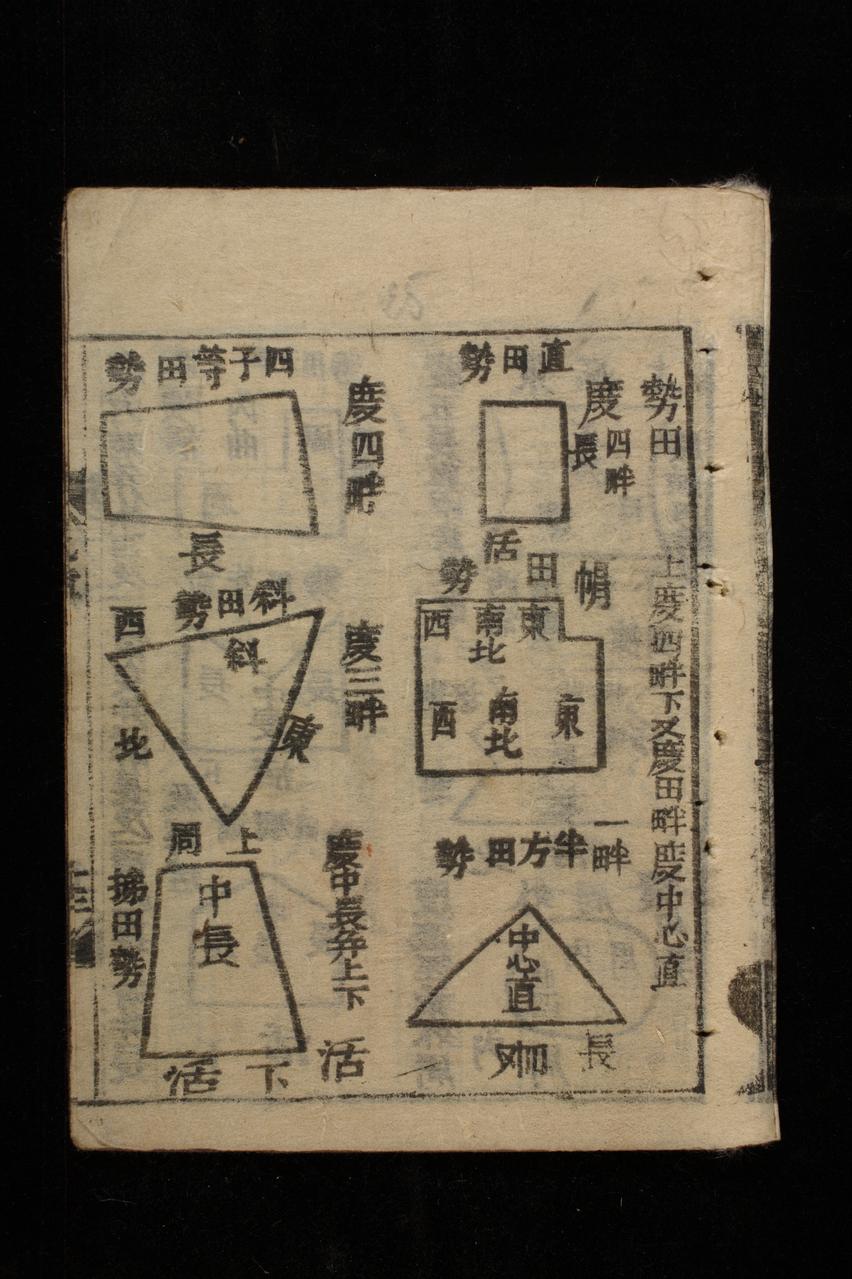 勢田
上度四畔下又度田畔度中心直
直田勢
度四畔
長
活
帩田勢
東
南北
西
東
南北
西
一畔
半方田勢
中心直
長
四子等田勢
度四畔
長
斜田勢
斜
西
東
北
度三畔
梯田勢
上周
中長
度中長弁上下
活
下活